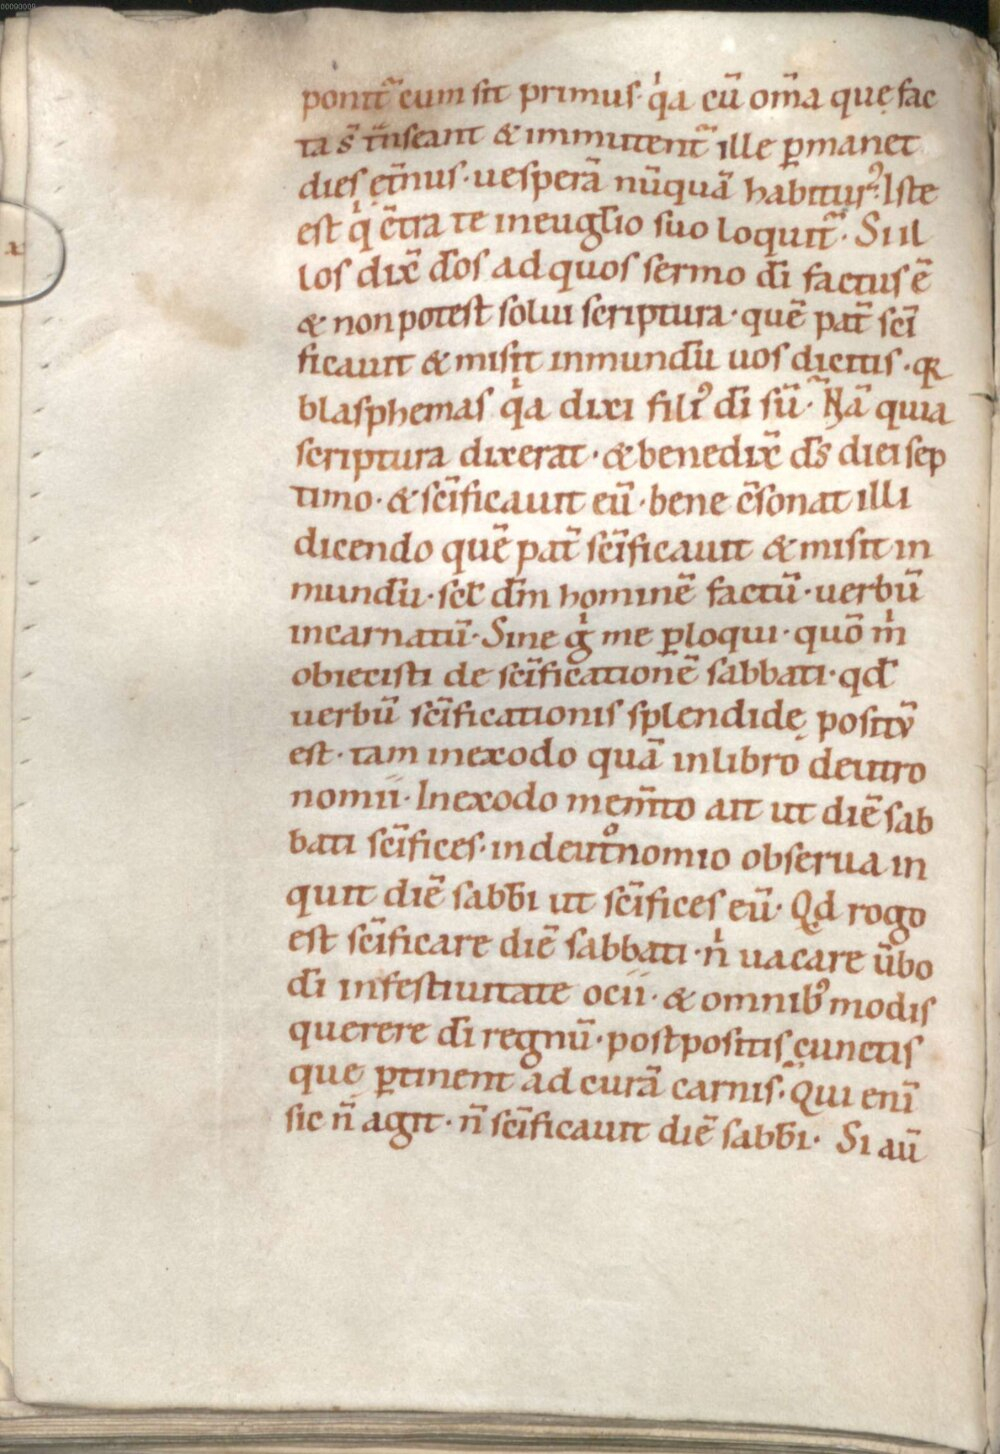 00090009
ponit᷑ cum sit primus· q̍a cū om̄a quę fac
ta s̄ t̄nseant & immutent᷑ ille ꝑmanet
dies et̄nus· uesperā nūquā habiturꝰ· Iste
est q̍ c̄tra te in euglio suo loquit᷑· Si il
los dix̄ d̄os ad quos sermo d̄i factus ē
& non potest solui scriptura· quē pat̄ sc̄i
ficauit & misit in mundū uos dicitis· qꝛ
blasphemas q̍a dixi filiꝰ d̄i sū· Nā quia
scriptura dixerat· & benedix̄ d̄s diei sep
timo· & sc̄ificauit eū· bene c̄sonat illi
dicendo quē pat̄ sc̄ificauit & misit in
mundū· scꝉ d̄m hominē factū· uerbū
incarnatū· Sine g̍ me ꝑloqui· quō m̍
obiecisti de sc̄ificationē sabbati· qd̄
uerbū sc̄ificationis splendidę positū
est· tam in exodo quā in libro deutro
nomii· In exodo mem̄to ait ut diē sab
bati sc̄ifices· in deut̊nomio obserua in
quit diē sabb̄i ut sc̄ifices eū· Qd rogo
est sc̄ificare diē sabbati· n̍ uacare ūbo
d̄i in festiuitate ocii· & omnibꝰ modis
querere d̄i regnū· postpositis cunctis
quę ꝑtinent ad curā carnis· Qui enī
sic n̄ agit· n̄ sc̄ificauit diē sabb̄i· Si aū